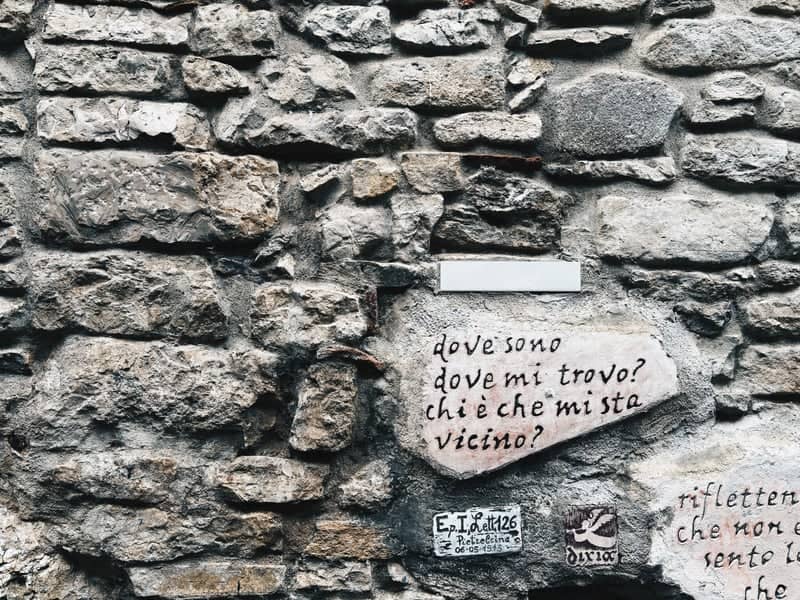 dove sono
dove mi trovo?
chi è che mi sta
vicino?
Ep. I, Lett 126
Pietrelcina
dixia
rifletten
che non e
sento l
che